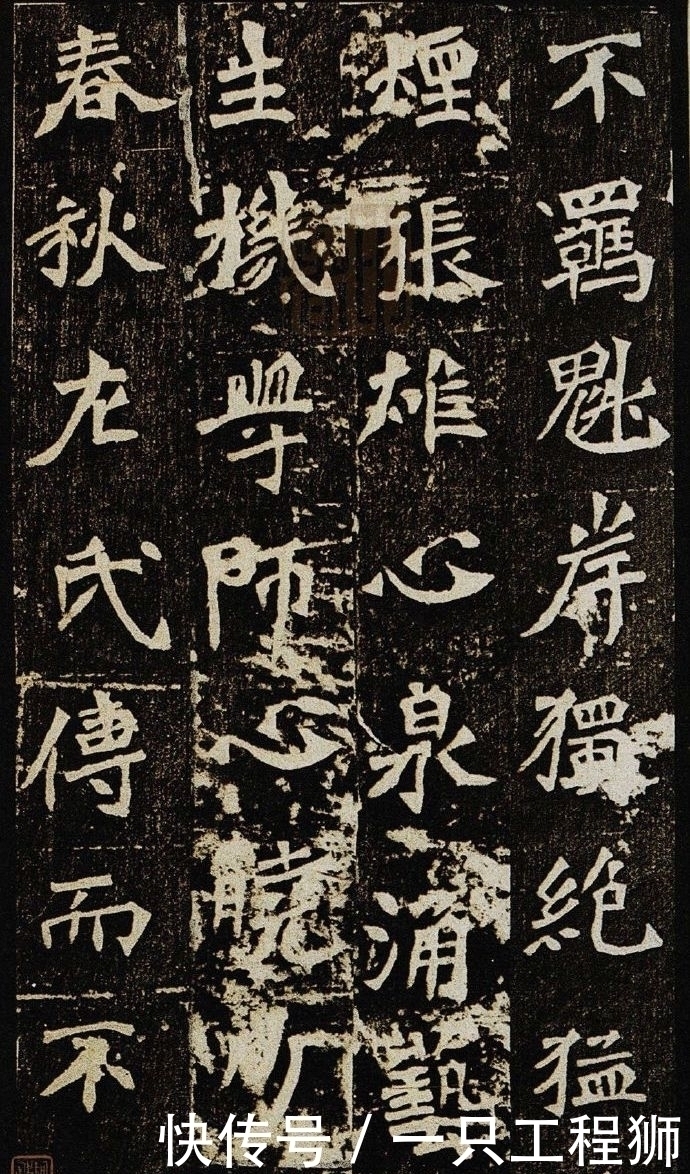 不羈魁岸獨絶猛
煙張雄心泉涌藝
生機學師心曉
春秋左氏傳而不
快传号 / 一只工程狮